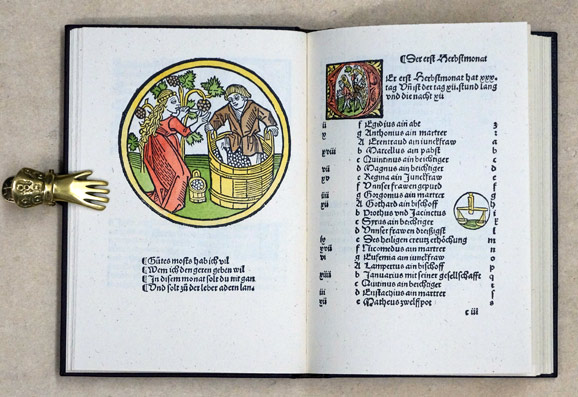 ¶Gůtes mosts hab ich vil
¶Wem ich den geren geben wil
¶In disem monat solt du nit gan
¶Vnd solt zů der leber adern lan.
¶Der erst Herbstmonat
Er erst Herbstmonat hat xxx.
tag Vñ ist der tag xij. stund lang
vnd die nacht xij
ij f Egidius ain abt 3
x g Anthonius ain martrer
A Erentraud ain iunckfraw
xviij b Marcellus ain pabst
c Quintinus ain beichtiger
d Magnus ain beichtiger
e Regina ain Junckfraw
f Vnnser frawen gepurd f
g Gorgonius ain martrer g
A Gothard ain bischoff
b Prothus vnd Jacinctus
c Syrus ain beichtiger
d Vnnser frawen dreißigst l
e Des heiligen creutz erhöchung m
f Nicomedus ain martrer n
g Eufemia ain iunckfraw o
A Lampertus ain bischoff p
b Januarius mit seiner gesellschafft q
c Quitinus ain beichtiger r
d Eustachius ain martrer s
e Matheus zwelffpot
c iij